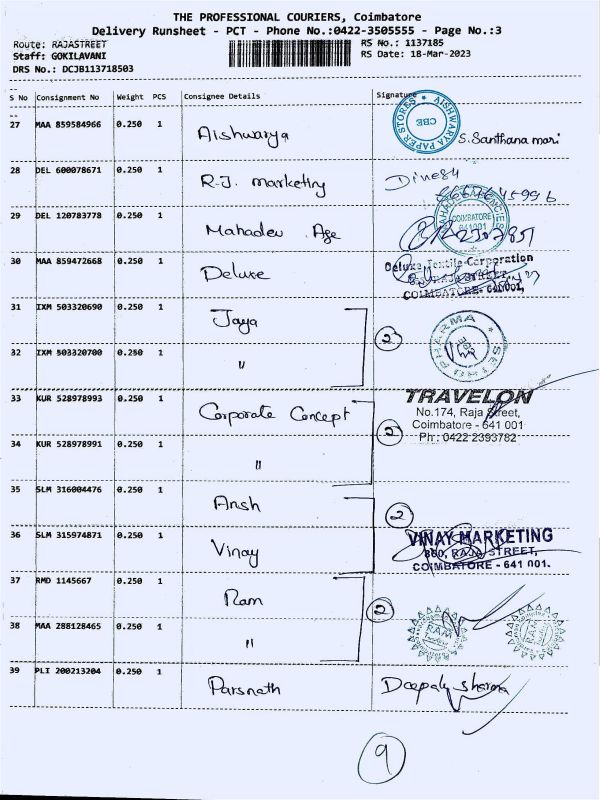 THE PROFESSIONAL COURIERS, Coimbatore
Delivery Runsheet - PCT - Phone No.:0422-3505555 - Page No.:3
Route: RAJASTREET
RS No.: 1137185
Staff: GOKILAVANI
RS Date: 18-Mar-2023
DRS No.: DCJB113718503
S No Consignment No Weight PCS Consignee Details Signature
27 MAA 859584966 0.250 1 Aishwarya
AISHWARYA PAPER STORES CBE
S. Santhana mari
28 DEL 600078671 0.250 1 R.J. marketing Dinesh
29 DEL 120783778 0.250 1 Mahadev Age
COIMBATORE 641001
30 MAA 859472668 0.250 1 Deluxe
Deluxe Textile Corporation
COIMBATORE- 641001,
31 IXM 503320690 0.250 1 Jaya
2
PHARMA
32 IXM 503320700 0.250 1 "
33 KUR 528978993 0.250 1 Corporate Concept
2
TRAVELON
No.174, Raja Street,
Coimbatore - 641 001
Ph : 0422 2393782
34 KUR 528978991 0.250 1 "
35 SLM 316004476 0.250 1 Ansh
2
36 SLM 315974871 0.250 1 Vinay
VINAY MARKETING
860, RAJA STREET,
COIMBATORE - 641 001.
37 RMD 1145667 0.250 1 Ram
2
RAM
38 MAA 288128465 0.250 1 "
39 PLI 200213204 0.250 1 Parsnath Deepak sharma
9